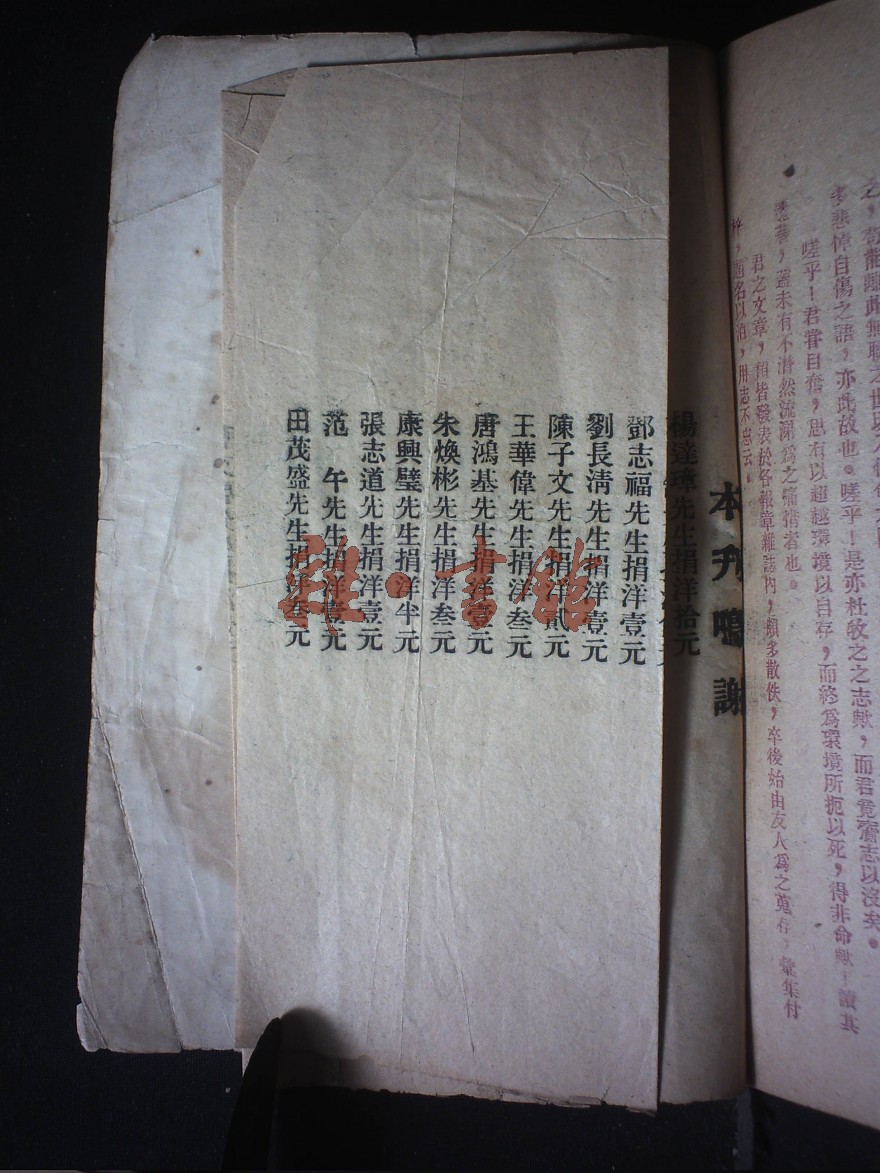 多悲悼自傷之語，亦此故也。嗟乎！是亦杜牧之之志歟，而君竟齎志以沒矣。
嗟乎！君嘗自奮，思有以超越環境以自存，而終爲環境所扼以死，得非命歟！讀其
蓋未有不潸然流涕爲之
君之文章，類皆發表於各報章雜誌內，頗多散佚，卒後始由友人爲之蒐存，彙集付
梓，用志不忘云。
本刋鳴謝
楊達璋先生捐洋拾元
鄧志福先生捐洋壹元
劉長淸先生捐洋壹元
陳子文先生捐洋貳元
王華偉先生捐洋叁元
唐鴻基先生捐洋壹元
朱煥彬先生捐洋叁元
康興璧先生捐洋半元
張志道先生捐洋壹元
范 午先生捐洋壹元
田茂盛先生捐洋叁元
雜·書館